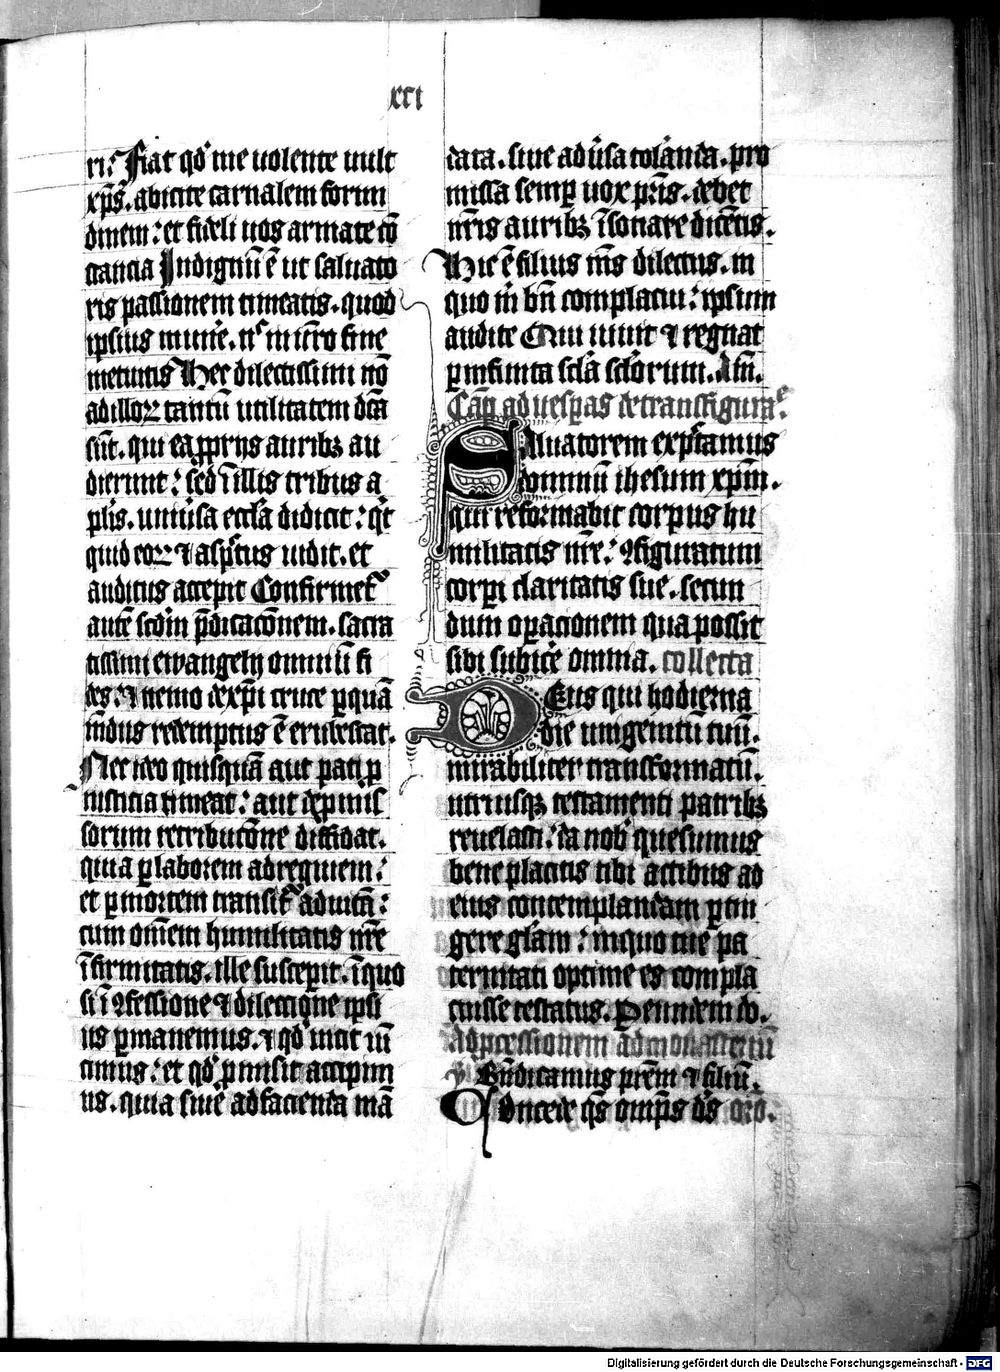 xci
ri: Fiat qd' me uolente uult
xp̄s. abicite carnalem formi
dinem: et fideli uos armate cō
stancia Indignū ē ut saluato
ris passionem timeatis. quod
ipsius mune. nec m sc̄ro fine
metuatis Hec dilectissimi nō
ad illoꝝ tantū utilitatem dc̄a
sūt. qui ea ꝓprijs auribꝫ au
dierunt: sed ī illis tribus a
pl̄is. uniūsa eccl̄a didicit: q't
quid eoꝝ ⁊ asp̄tus uidit. et
auditus accepit Confirmet'
autē scd'm p̄dicac̄onem. sacra
tissimi ewangelij omniū fi
des: ⁊ nemo de xp̄i cruce ꝑ quā
mūdus redemptus ē erubescat.
Nec ideo quisquā aut pati ꝑ
iusticia timeat: aut de ꝓmis
sorum retribuc̄one diffidat.
quia ꝑ laborem ad requiem:
et ꝑ mortem transit' ad uitā:
cum om̄em humilitatis nr̄e
īfirmitatis. ille suscepit. ī quo
si ī ꝯfessione ⁊ dilectione ipsi
us ꝑmanemus. ⁊ qd' uicit uī
cimus: et qd' ꝓmisit accipim
us. quia siue ad facienda mā
data. siue ad ūsa tol'anda. pro
missa semꝑ uox pr̄is. debet
nr̄is auribꝫ īsonare dicētis.
Hic ē filius m̄s dilectus. in
quo m̄ bn̄ complacui: ipsum
audite Qui uiuit ⁊ regnat
ꝑ infinita scl̄a scl'orum. Am̄.
Cap̄ ad uesꝑas de transfigura.
Saluatorem exp̄tamus
dominū ihesum xp̄m.
qui reformabit corpus hu
militatis nr̄e: ꝯfiguratum
corpi claritatis sue. secun
dum oꝑacionem qua possit
sibi subic̄e omnia. collecta
Deus qui hodierna
die unigenitū tuū.
mirabiliter transformatū.
utriusqꝫ testamenti patribꝫ
reuelasti: da nob' quesumus
bene placitis tibi actibus ad
eius contemplandam ꝑtin
gere gl'am: in quo tue pa
ternitati optime es compla
cuisse testatus. Per eundem do.
Ad ꝓcessionem ad monasteriū
V Bn̄dicamus prēm ⁊ filiū.
Concede q̄s omp̄s d̄s orō.
Digitalisierung gefördert durch die Deutsche Forschungsgemeinschaft - DFG